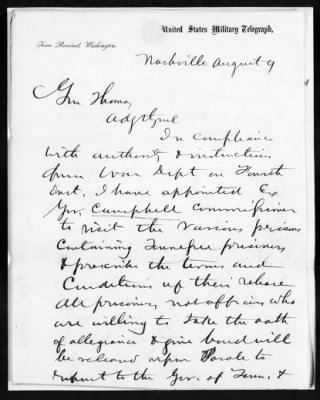 United States Military Telegraph,
Time Received, Washington.
Nashville August 9
Gen Thomas,
Adjt Genl
In compliance
with authority & instructions
from War Dept on Fourth
inst. I have appointed Ex
Gov. Campbell commissioner
to visit the various prisons
containing Tennessee prisoners
& prescribe the terms and
conditions of their release
all prisoners not officers who
are willing to take the oath
of allegiance & give bond will
be released upon Parole to
report to the Gov. of Tenn. &